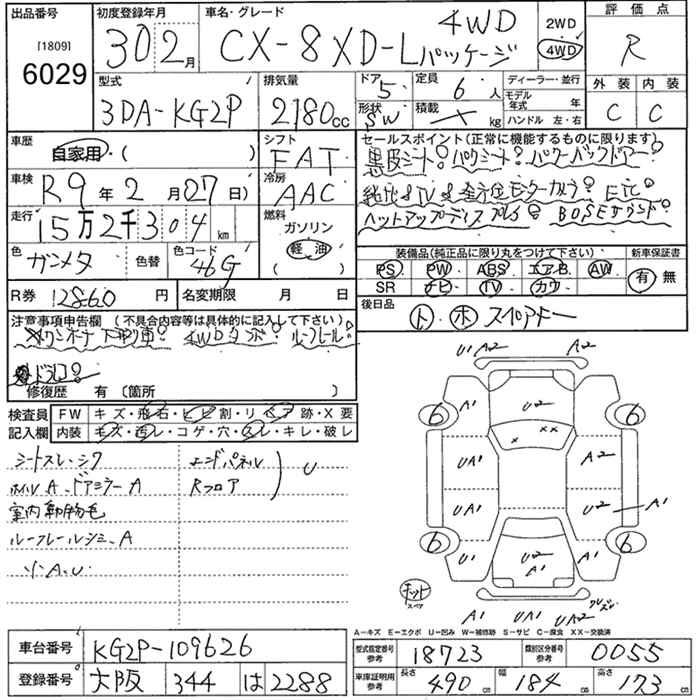 出品番号
[1809]
6029
初度登録年月
30 2月
車名・グレード
CX-8 XD-Lパッケージ 4WD
2WD
4WD
評価点
R
型式
3DA-KG2P
排気量
2180cc
ドア 5
形状 SW
定員 6人
積載 kg
ディーラー・並行
モデル年式 年
ハンドル 左・右
外装 内装
C C
車歴
自家用・( )
シフト
FAT
車検
R9年2月07日)
冷房
AAC
走行
15万2千304km
燃料
ガソリン
軽油
( )
色
ガンメタ
色替
色コード
46G
R券 12860円
名変期限 月 日
セールスポイント(正常に機能するものに限ります)
黒皮シート! パワーシート! パワーバックドアー!
純正 TV 全方位モニターカメラ! ETC!
ヘットアップディスプレイ! BOSEサウンド!
装備品(純正品に限り丸をつけて下さい)
PS・PW・ABS・エアB・AW
SR・ナビ・TV・カワ
新車保証書
有 無
後日品
ト・ホ スペアキー
注意事項申告欄 (不具合内容等は具体的に記入して下さい)
ワンオーナー下取り車! 4WDターボ! ルーフレール!
ドラレコ!
修復歴 有 (箇所 )
検査員記入欄
FW キズ・飛石・ヒビ割・リペア跡・X要
内装 キズ・汚レ・コゲ・穴・スレ・キレ・破レ
シートスレ・シワ
ホイルA、ドアミラーA
室内動物毛
A
A、U
エンドパネル
Rフロア
U
U1 A2 A2
A1 U2 A1
6 6
× ××
UA1 A2
UA1 U2 A1
6 6
U1 U2 A1 A1
キット
スペア
A1 UA1 UA2
A−キズ E−エクボ U−凹み W−補修跡 S−サビ C−腐食 XX−交換済
車台番号 KG2P-109626
登録番号 大阪 344 は 2288
型式指定番号 参考 18723
類別区分番号 参考 0055
車庫証明用 参考
長さ 490cm
幅 184cm
高さ 173cm